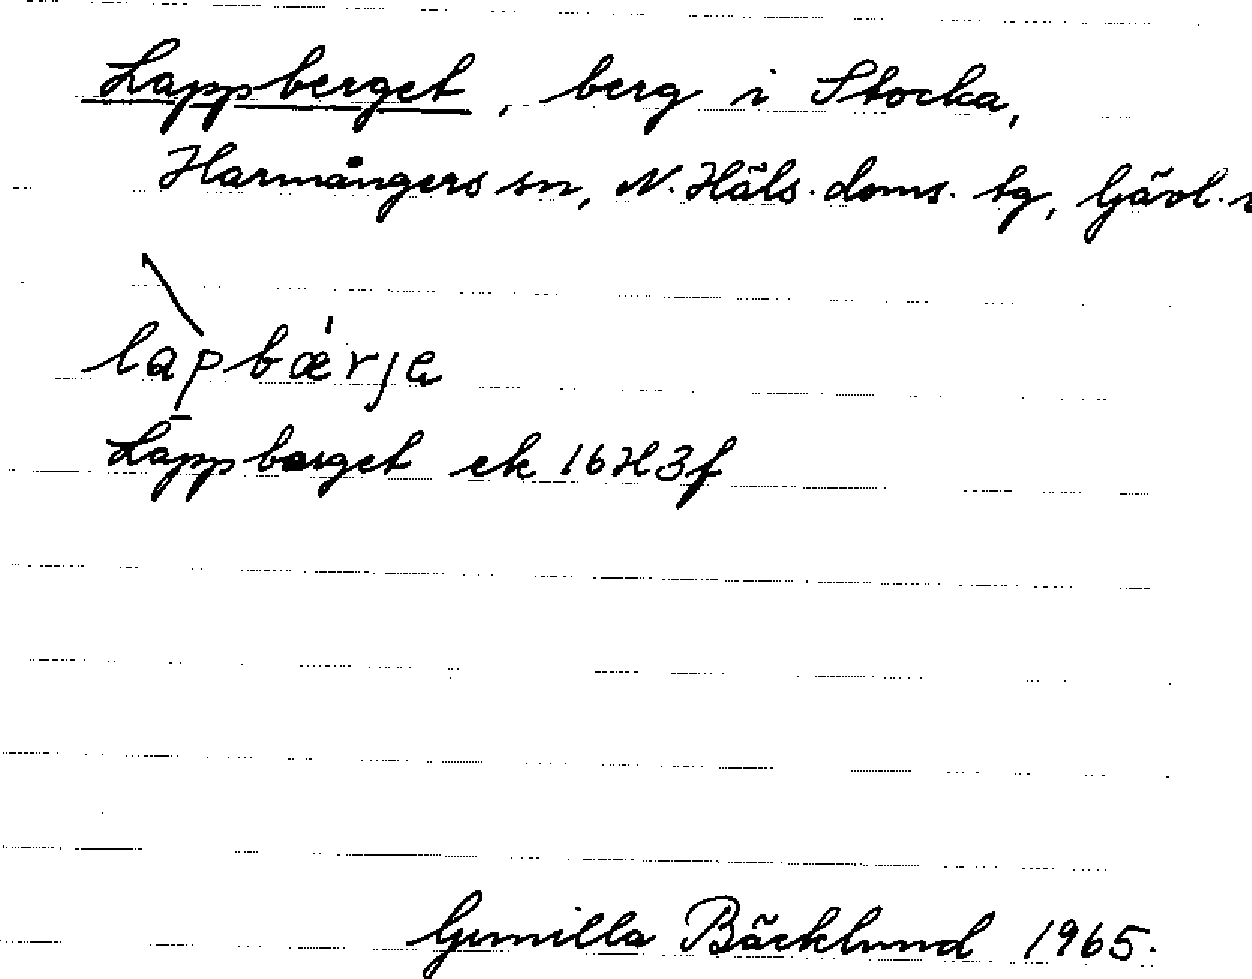 Lappberget, berg i Stocka,
Harmångers sn, N. Häls. doms. tg, Gävl.
làpbæ̀rję
Lappberget ek 16H3f
Gunilla Bäcklund 1965.